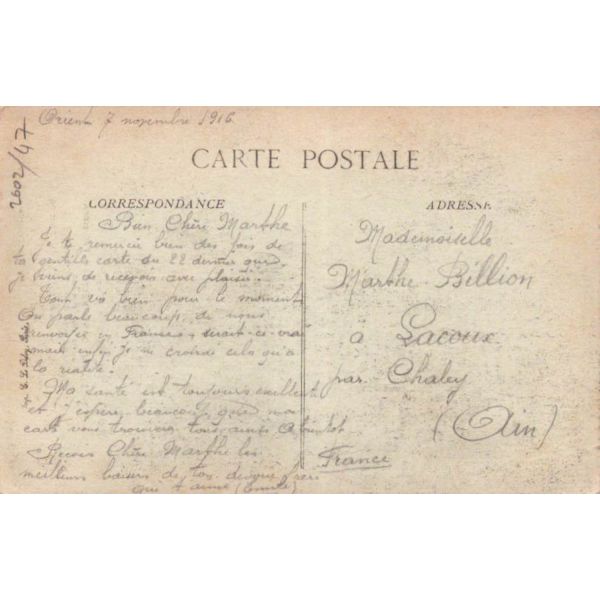 Orient 7 novembre 1916
2602/47
CARTE POSTALE
CORRESPONDANCE
ADRESSE
Bien Chère Marthe
Je te remercie bien des fois de
ta gentille carte du 22 dernier que
je viens de recevoir avec plaisir.
Tout va bien pour le moment
On parle beaucoup de nous
renvoyer en France, serait-ce vrai
mais enfin je ne croirai cela qu'à
la réalité.
Ma santé est toujours excellente
et j'espère beaucoup que ma
carte vous trouvera tous ainsi A bientôt
Reçois Chère Marthe les
meilleurs baisers de ton
qui t'aime (Emile)
Mademoiselle
Marthe Billion
à Lacoux
par Chaley
(Ain)
France